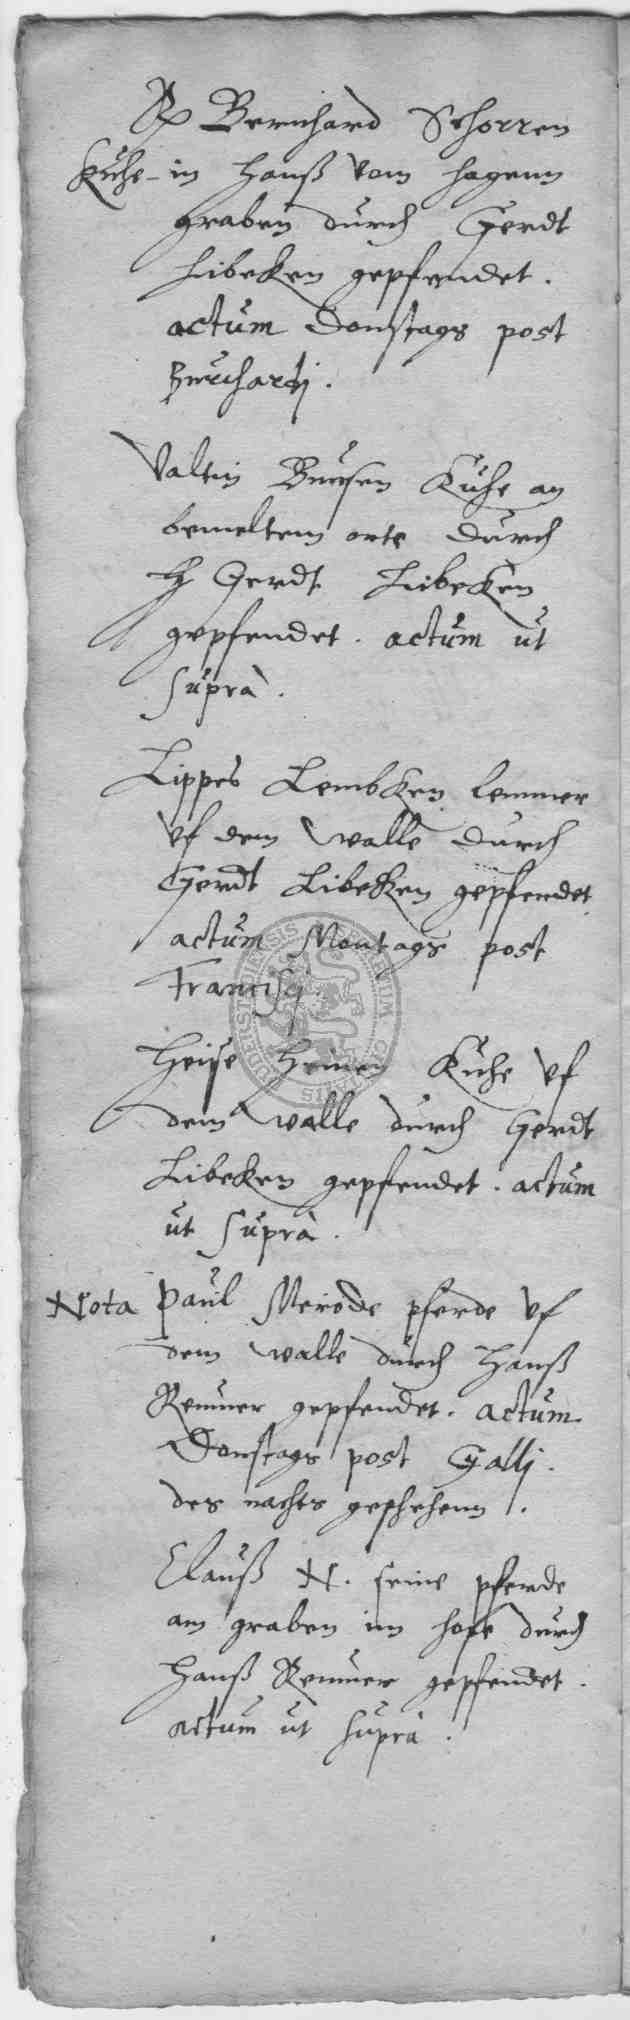 Bernhard Schorren
Kuhe in Hanß vom Hagenn
graben durch Gerdt
Libeken gepfendet.
actum Donstags post
Burchardj.
Valtin Bursen Kuhe an
bemeltem orte durch
Gerdt Libeken
gepfendet. actum ut
suprà.
Lippes Lembken lemmer
vf dem walle durch
Gerdt Libeken gepfendet
actum Montags post
Francisci
Heise Heinen Kuhe vf
dem walle durch Gerdt
Libeken gepfendet. actum
ut suprà.
Nota Paul Merode pferde vf
dem walle durch Hanß
Remmer gepfendet. actum
Donstags post Gallj.
des nachts geschehenn.
Clauß N. seine pferde
am graben im hofe durch
Hanß Remmer gepfendet.
actum ut suprà.